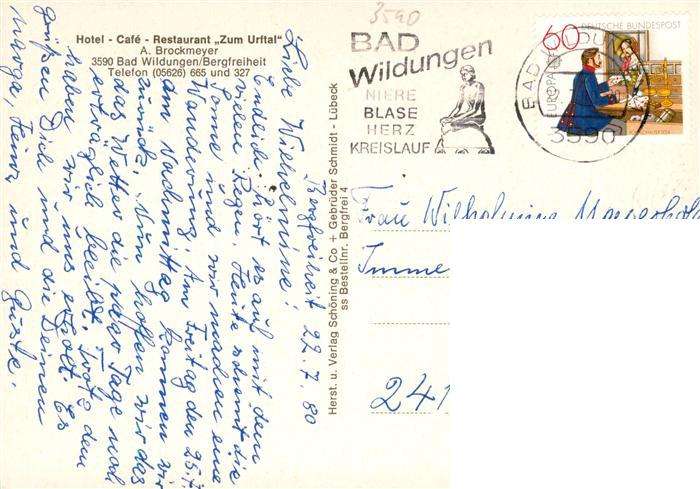 Hotel - Café - Restaurant „Zum Urftal"
A. Brockmeyer
3590 Bad Wildungen/Bergfreiheit
Telefon (05626) 665 und 327
Bergfreiheit 22.7.80
Liebe Wilhelmine!
Endlich hört es auf mit dem
vielen Regen. Heute scheint die
Sonne und wir machen eine
Wanderung. Am Freitag den 25.7.
am Nachmittag kommen wir
zurück. Nun hoffen wir das
das Wetter die paar Tage noch
erträglich bleibt. Trotz dem
haben wir uns erholt. Es
grüßen Dich und die Deinen
Heinz und Guste.
Herst. u. Verlag Schöning & Co + Gebrüder Schmidt - Lübeck
ss Bestellnr. Bergfrei 4
3590
BAD
Wildungen
NIERE
BLASE
HERZ
KREISLAUF
60
DEUTSCHE BUNDESPOST
EUROPA
BAD
3590
Frau Wilhelmine
Imme
241